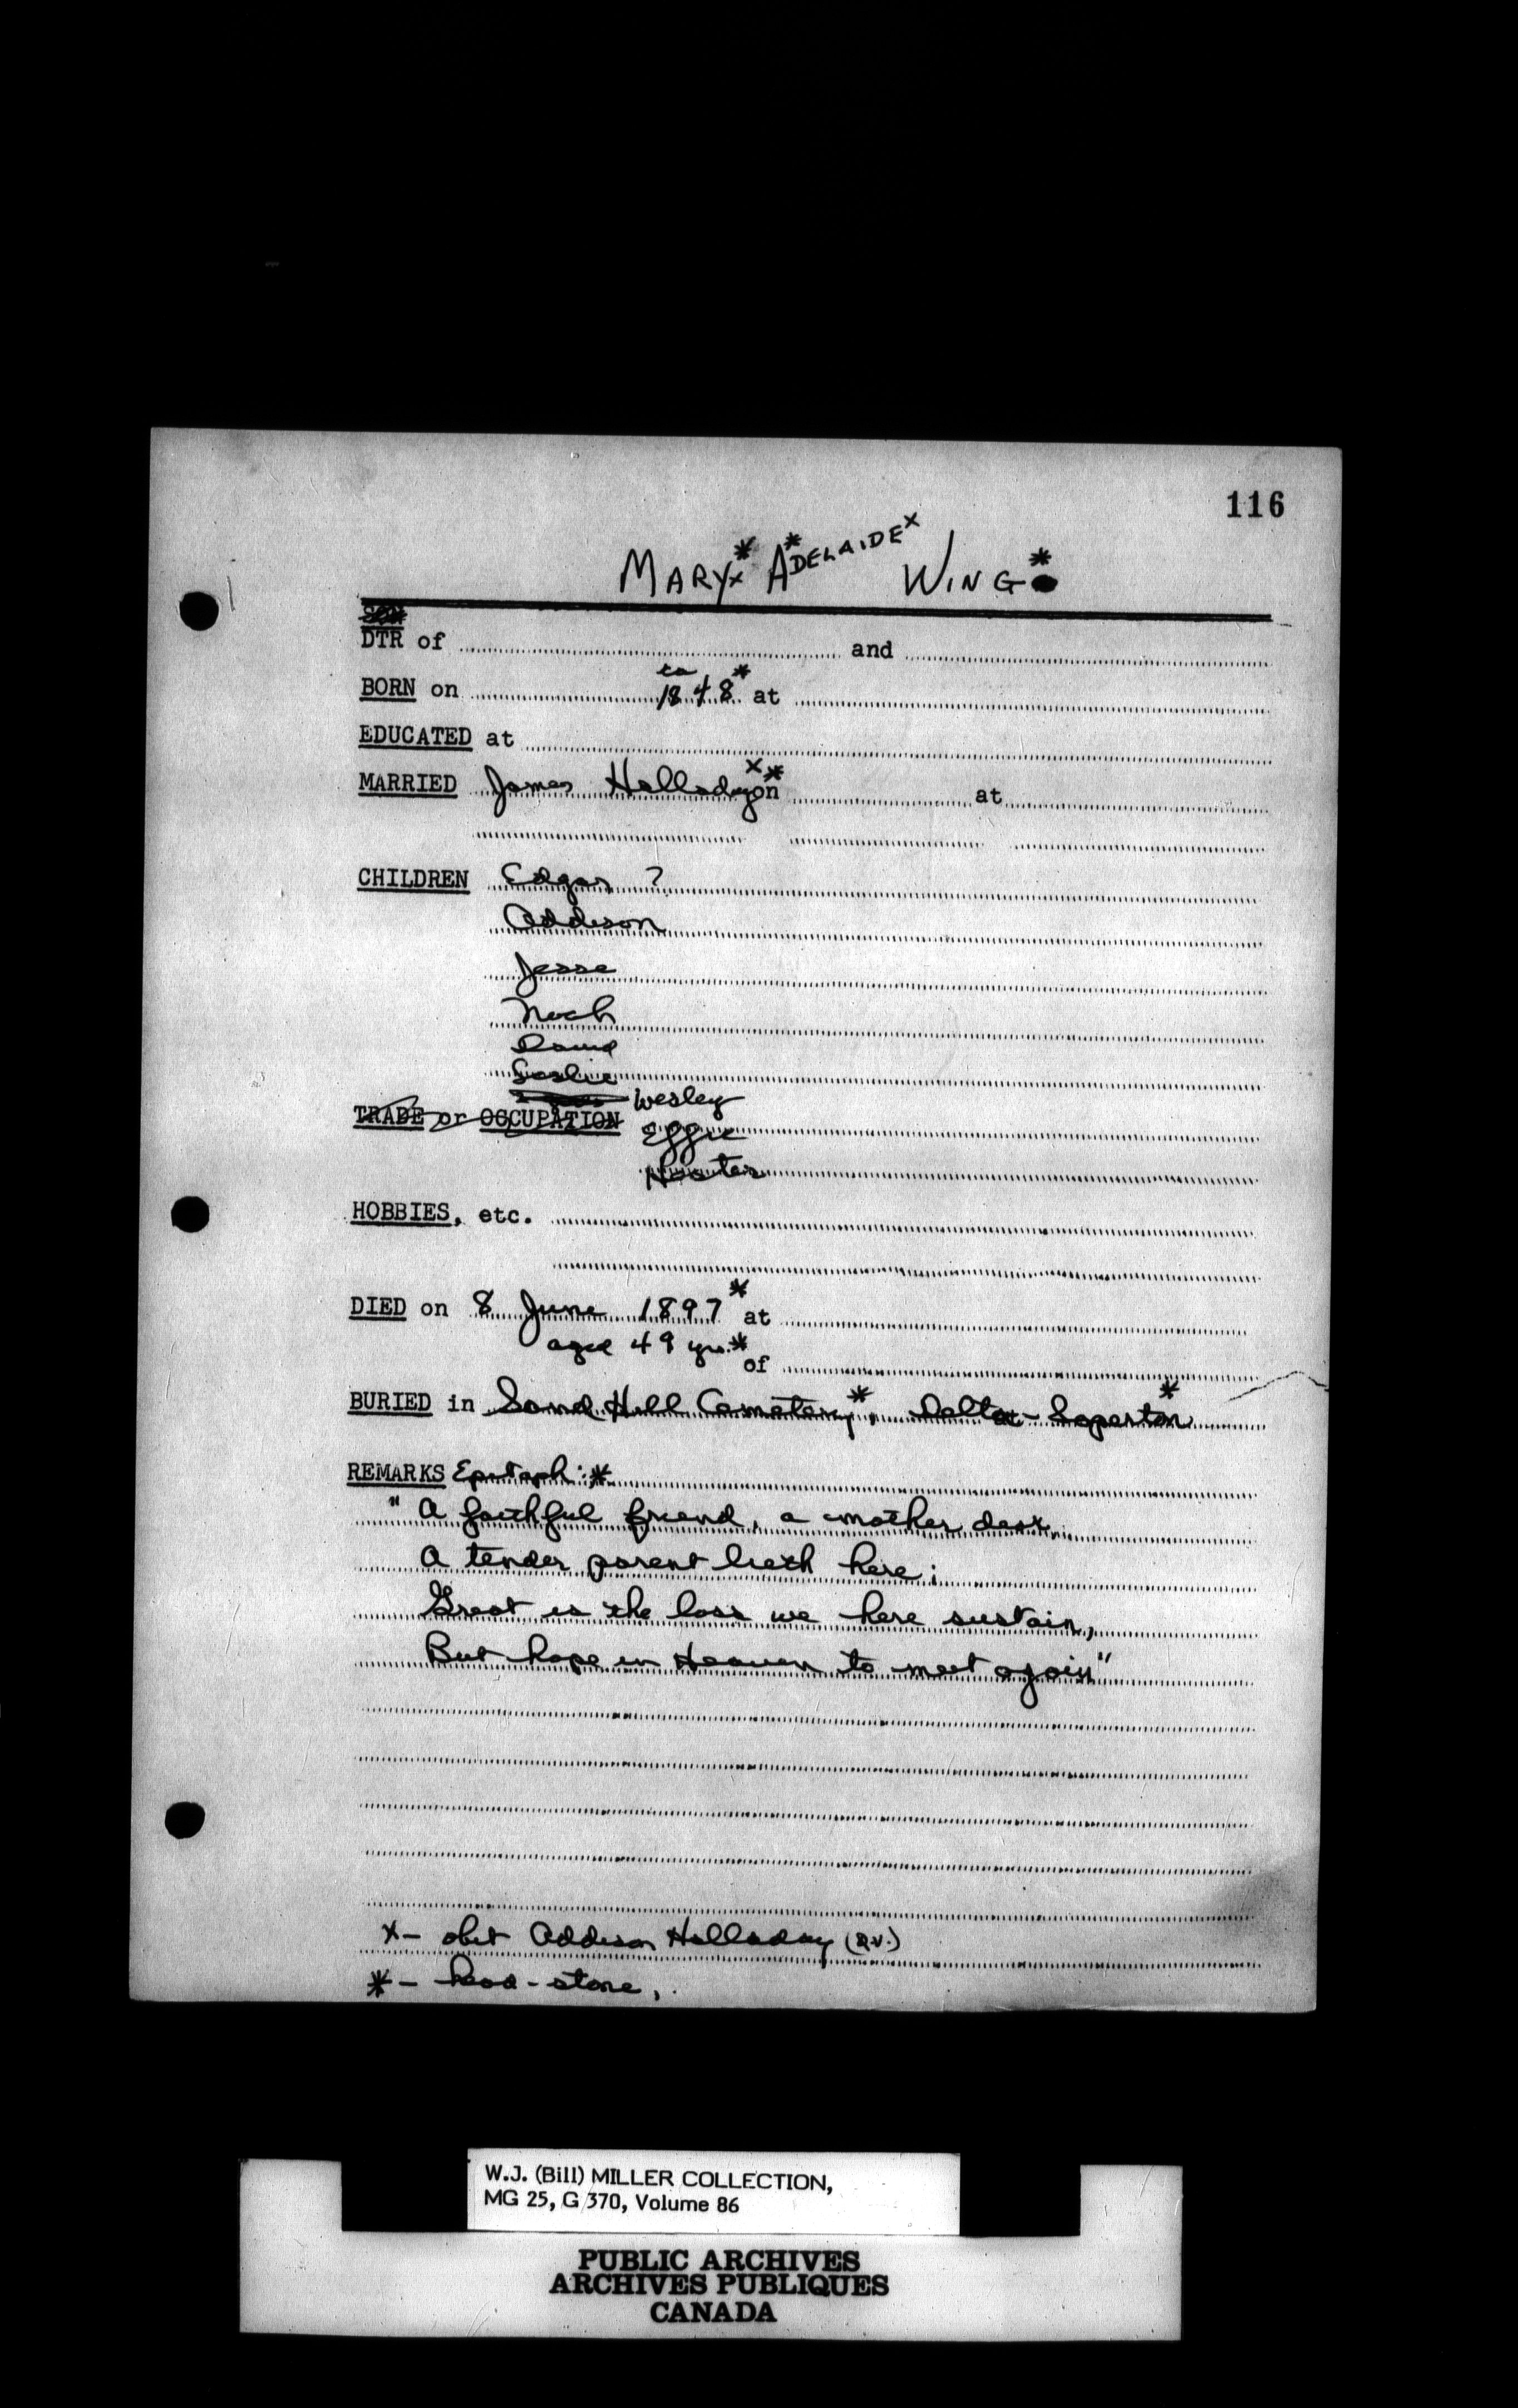 116
MARYx* A*DELAIDEx WING*
SON
DTR of and
ca
BORN on 1848* at
EDUCATED at
MARRIED James Halladay x* on at
CHILDREN Edgar ?
Addison
Jesse
Noah
David
Leslie
Wesley
TRADE or OCCUPATION Effie
Hester
HOBBIES, etc.
DIED on 8 June 1897* at
aged 49 yrs.* of
BURIED in Sand Hill Cemetery*, Delta - Soperton*
REMARKS Epitaph:*
"A faithful friend, a mother dear,
A tender parent lieth here;
Great is the loss we here sustain,
But hope in Heaven to meet again"
x - obit Addison Halladay (q.v.)
* - head-stone.
W.J. (Bill) MILLER COLLECTION,
MG 25, G 370, Volume 86
PUBLIC ARCHIVES
ARCHIVES PUBLIQUES
CANADA